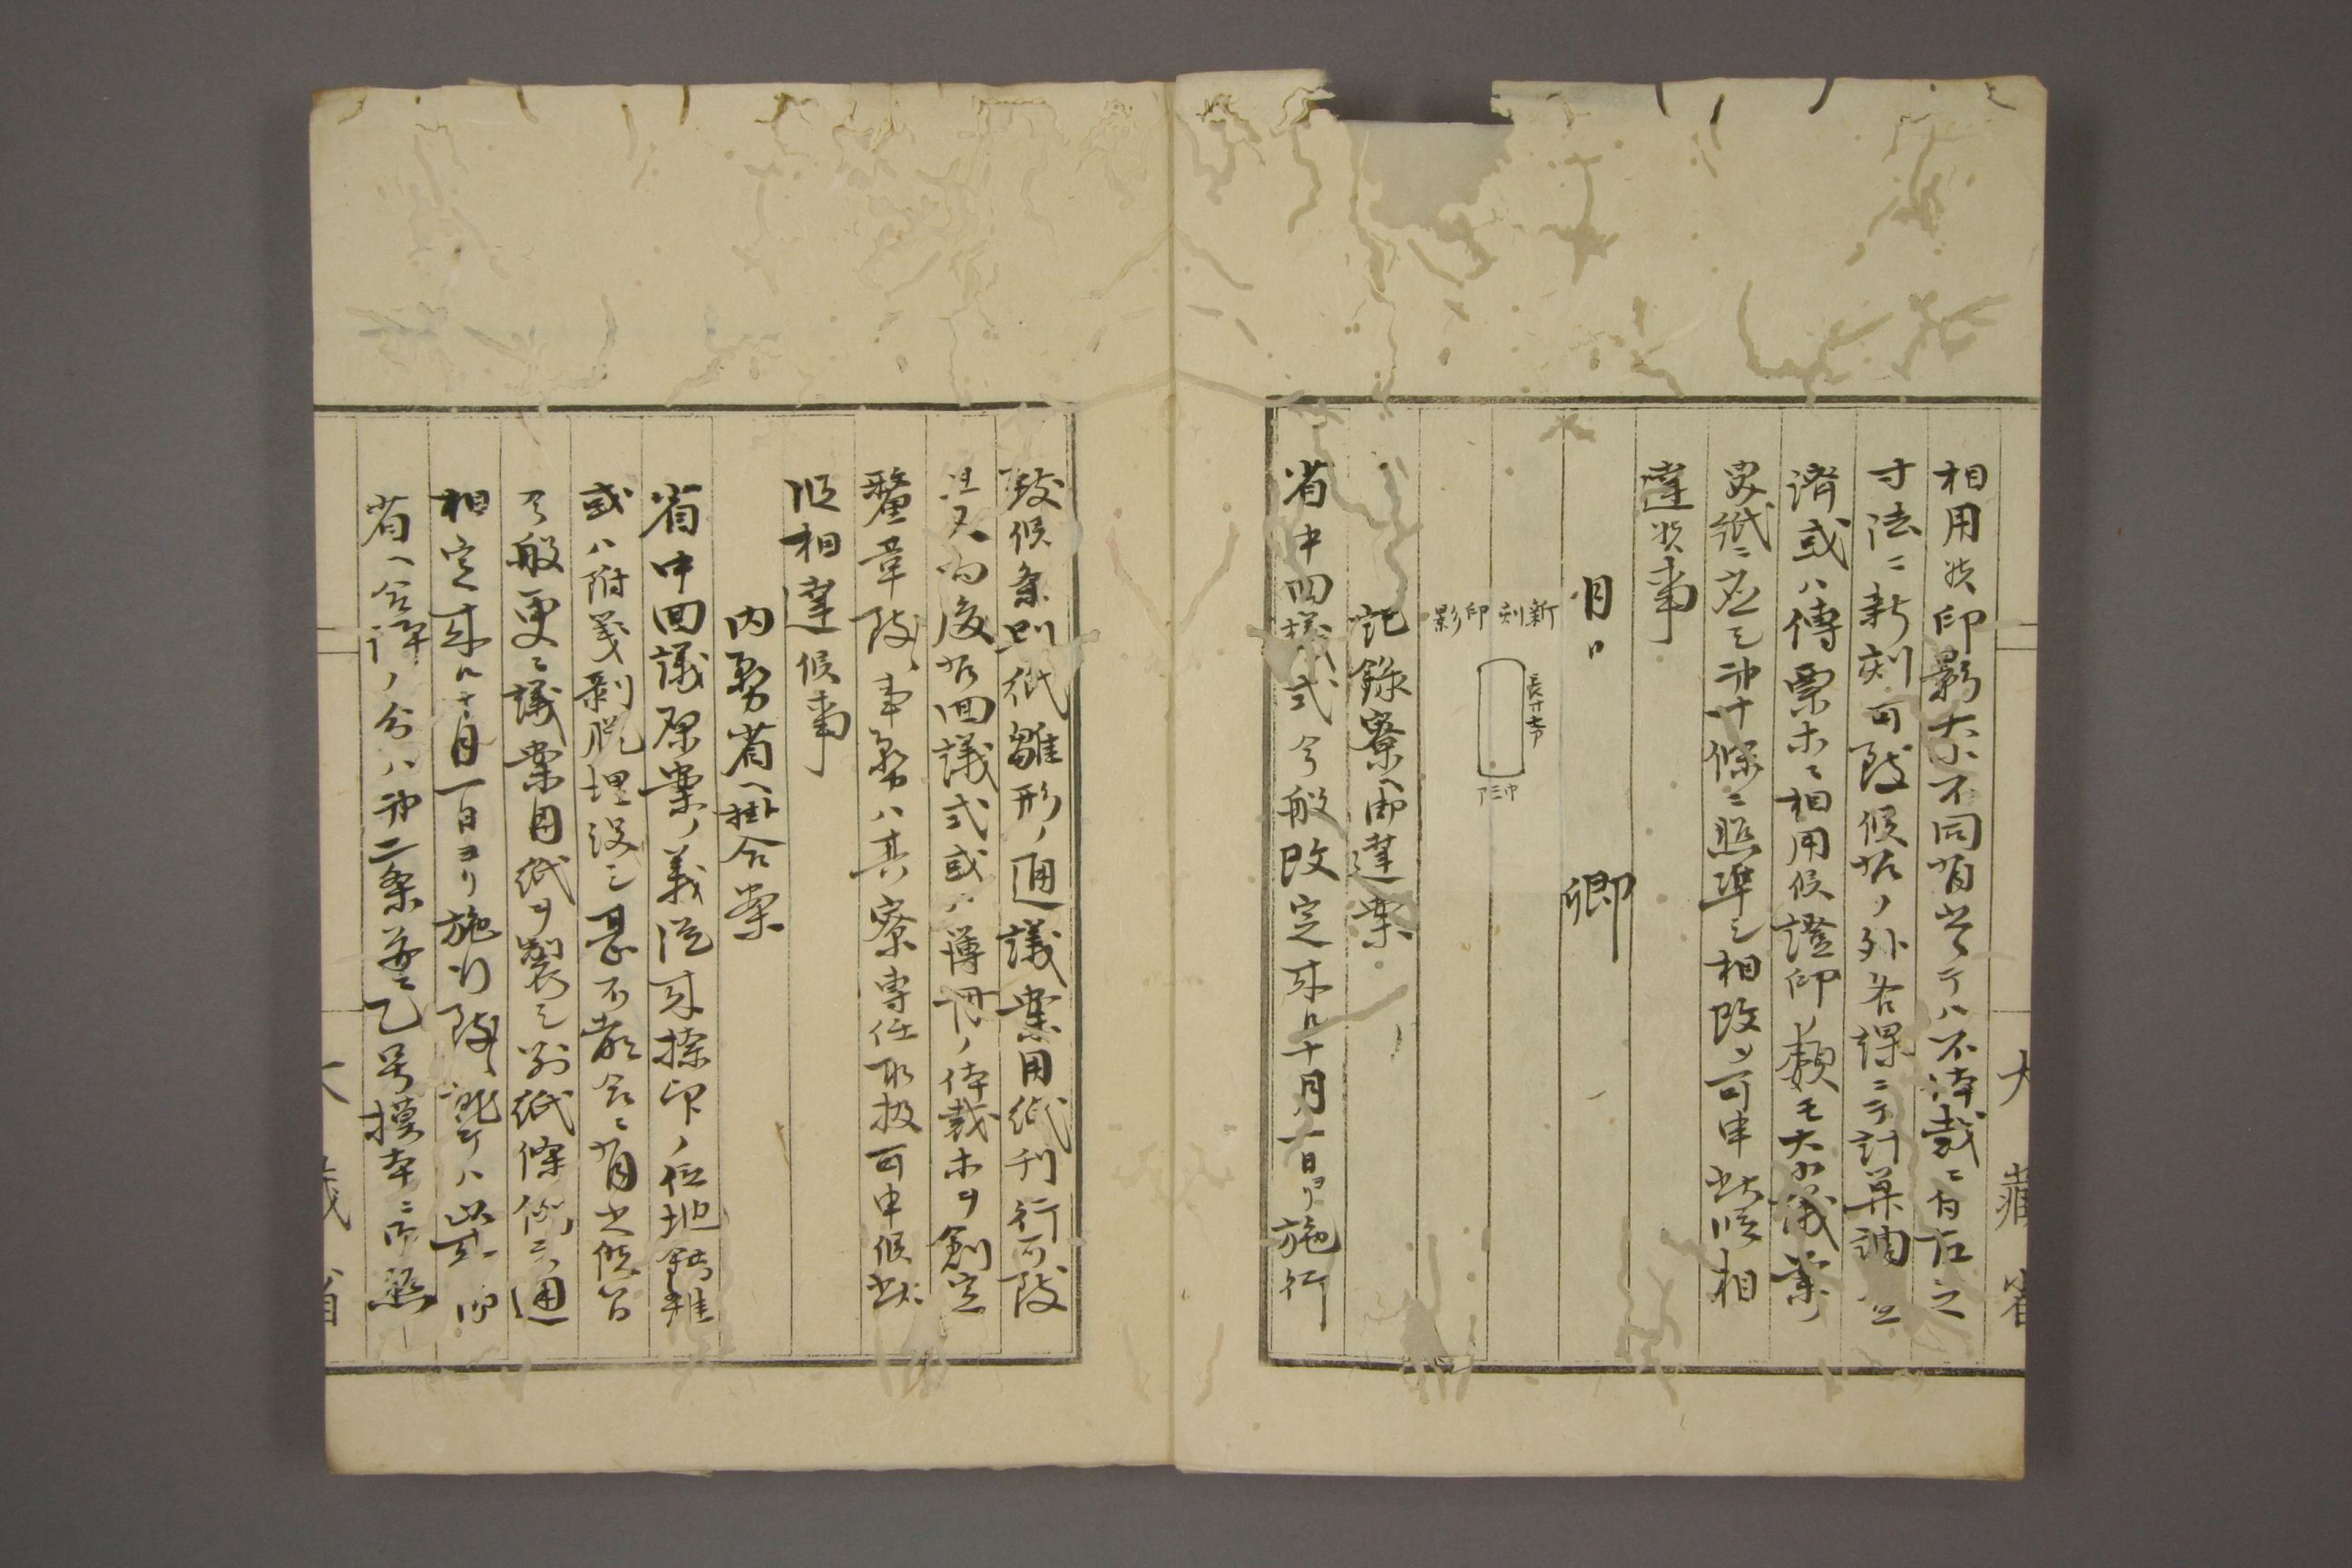 相用候印影大小不同有之候テハ不体裁ニ付右之
寸法ニ新刻可致候尤ノ外各課ニテ計算調
済或ハ傳票等ニ相用候證印ノ類モ大小議案
用紙ニ應シ第十條ニ照準シ相改メ可申此段相
達候事
月日　卿
新刻印影
記録寮へ御達案
省中回議式今般改定來ル十月一日ヨリ施行
致候条別紙雛形ノ通議案用紙刊行可致
且又向後右回議式或ハ簿冊ノ体裁等ヲ創定
釐革致ス事務ハ其寮専任取扱可申候此
段相達候事
内務省へ掛合案
省中回議原案ノ義従来捺印ノ位地錯雑
或ハ附箋剥脱埋没シ甚不都合ニ有之候間
今般更ニ議案用紙ヲ製シ別紙條例之通
相定来ル十月一日ヨリ施行致候就テハ此末御
省へ合議ノ分ハ第二条并ニ乙号模本ニ御照
大藏省
大藏省